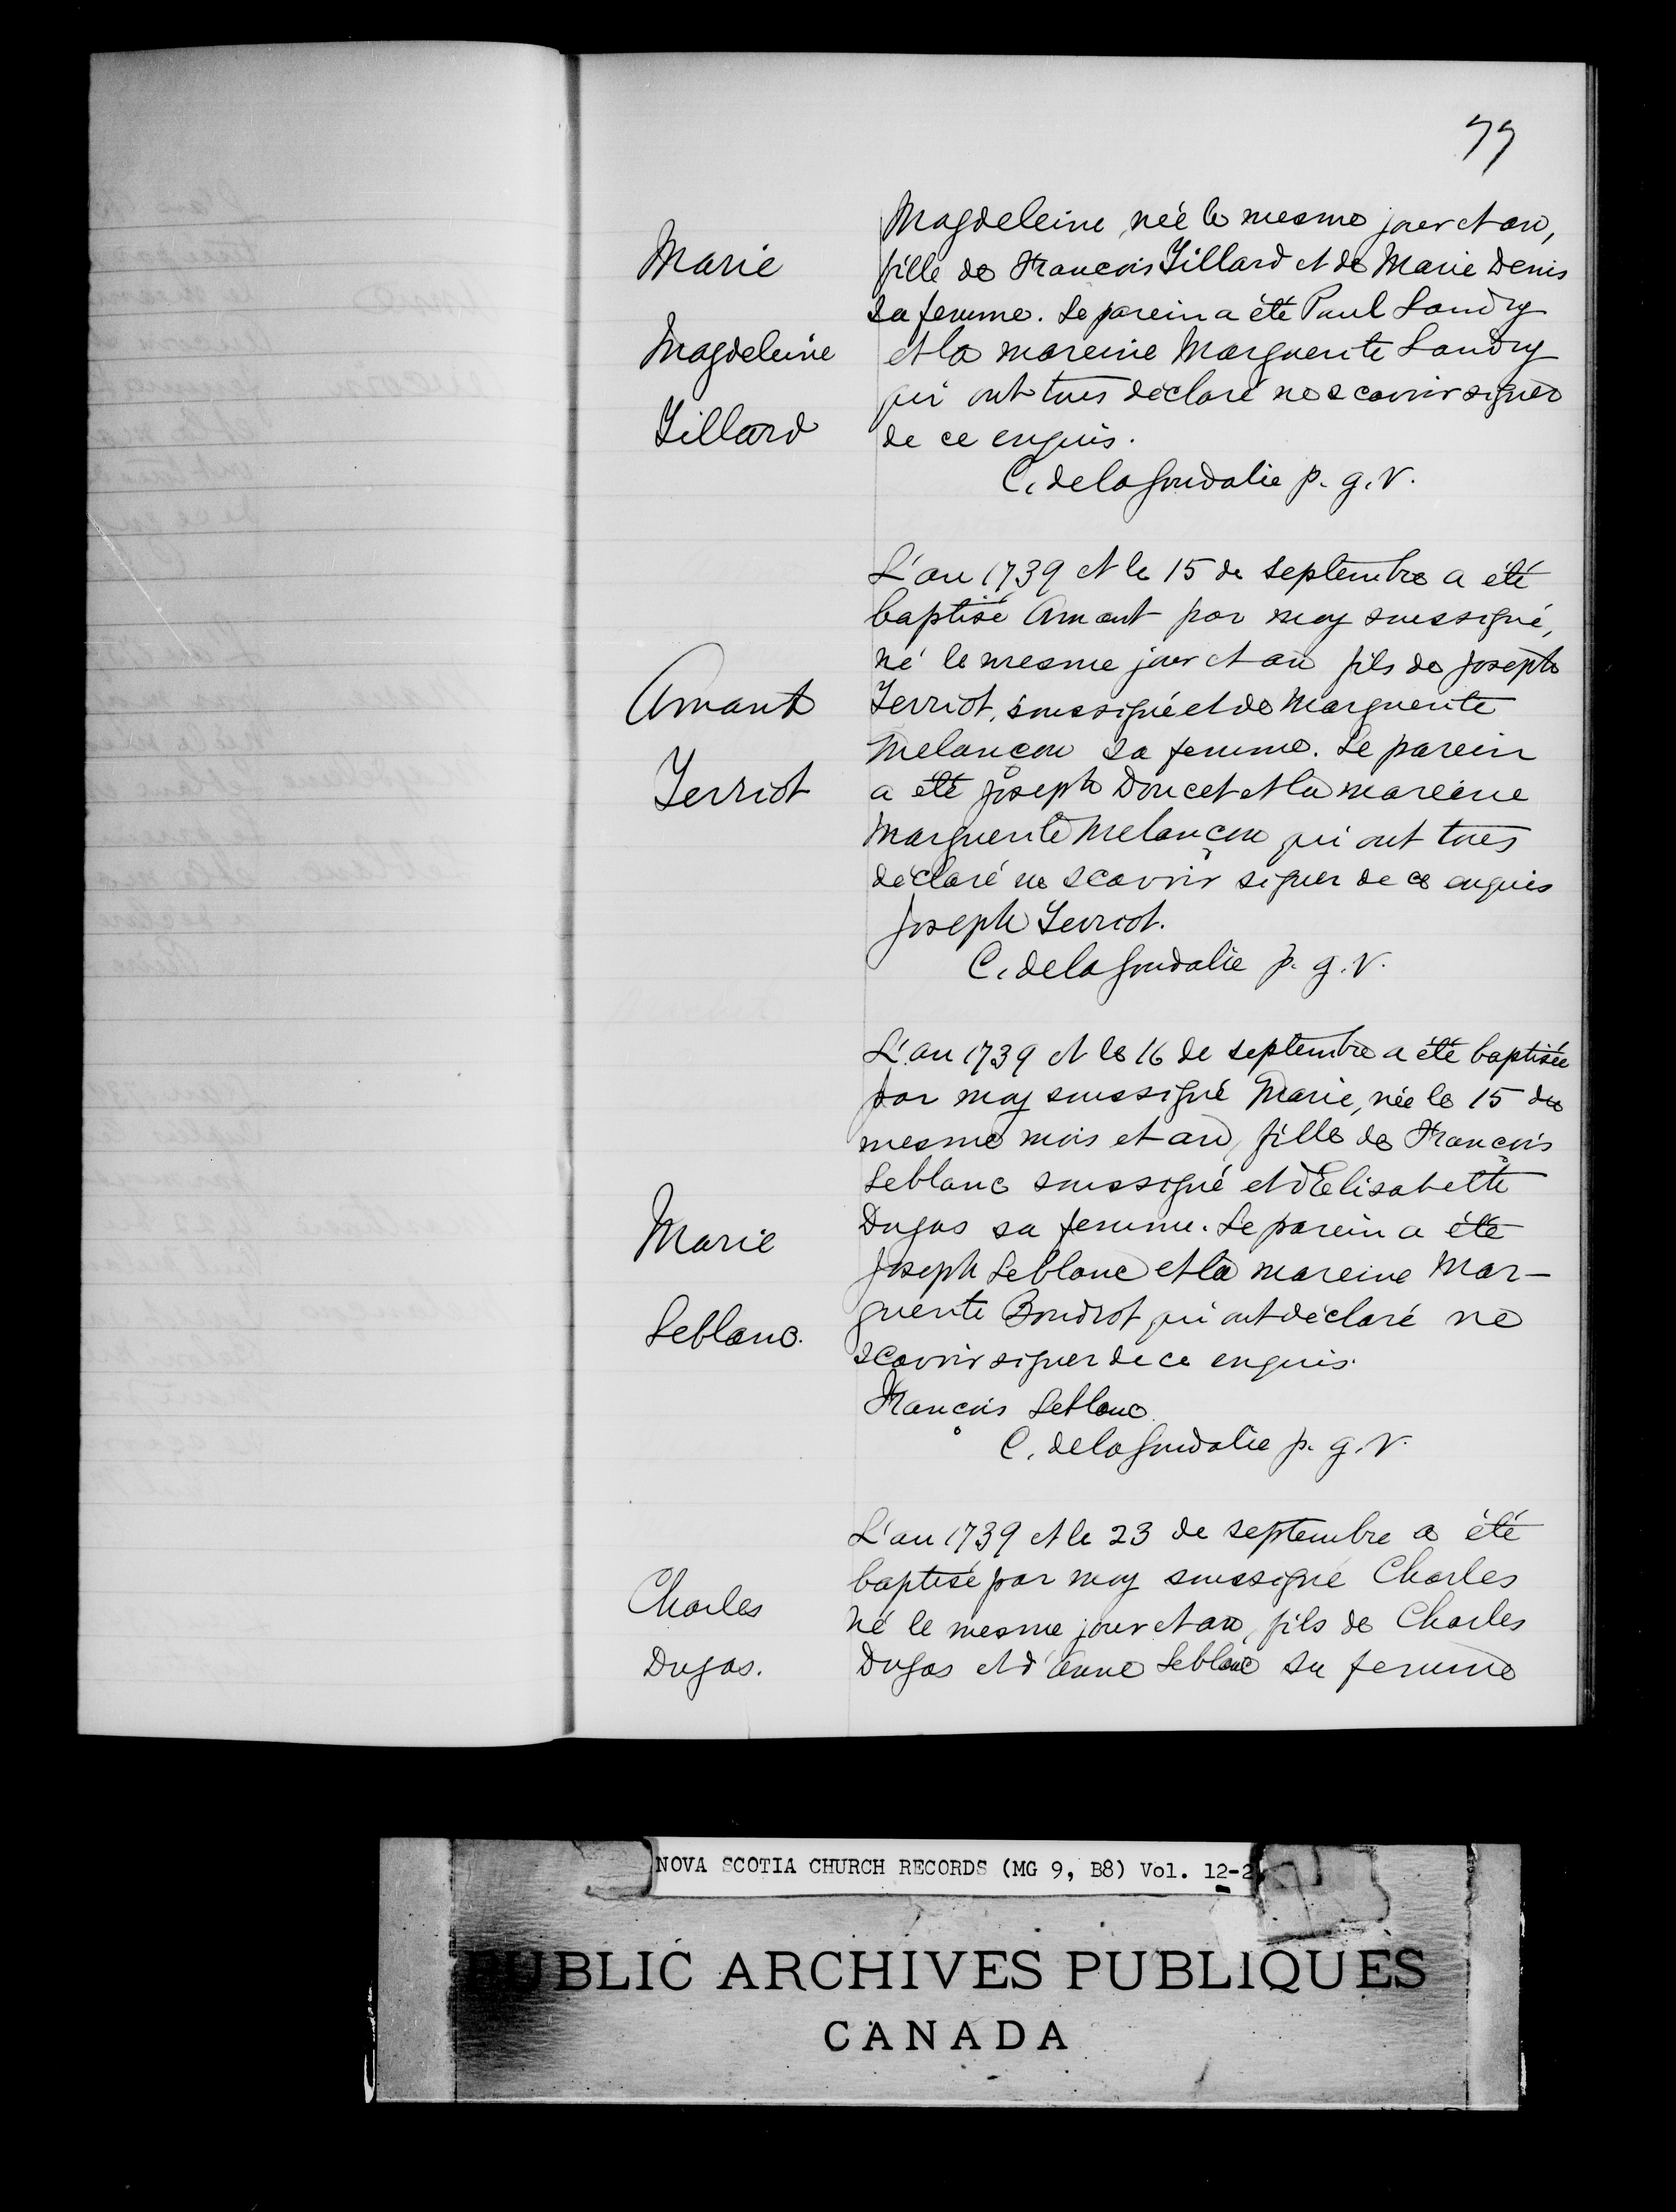 77
Marie
Magdeleine
Tillard
Magdeleine, née le mesme jour et an,
fille de François Tillard et de Marie Denis
sa femme. Le parein a été Paul Landry
et la mareine Marguerite Landry
qui ont tous déclaré ne scavoir signer
de ce enquis.
C. de la Goudalie p. g. v.
Amant
Terriot
L'an 1739 et le 15 de septembre a été
baptisé Amant par moy soussigné,
né le mesme jour et an fils de Joseph
Terriot, soussigné et de Marguerite
Melançon sa femme. Le parein
a été Joseph Doucet et la mareine
Marguerite Melançon qui ont tous
déclaré ne scavoir signer de ce enquis
Joseph Terriot.
C. de la Goudalie p. g. v.
Marie
Leblanc.
L'an 1739 et le 16 de septembre a été baptisée
par moy soussigné Marie, née le 15 du
mesme mois et an, fille de François
Leblanc soussigné et d'Elisabeth
Dugas sa femme. Le parein a été
Joseph Leblanc et la mareine Mar-
guerite Boudrot qui ont déclaré ne
scavoir signer de ce enquis.
François Leblanc
C. de la Goudalie p. g. v.
Charles
Dugas.
L'an 1739 et le 23 de septembre a été
baptisé par moy soussigné Charles
né le mesme jour et an, fils de Charles
Dugas et d'Anne Leblanc sa femme
NOVA SCOTIA CHURCH RECORDS (MG 9, B8) Vol. 12-2
PUBLIC ARCHIVES PUBLIQUES
CANADA